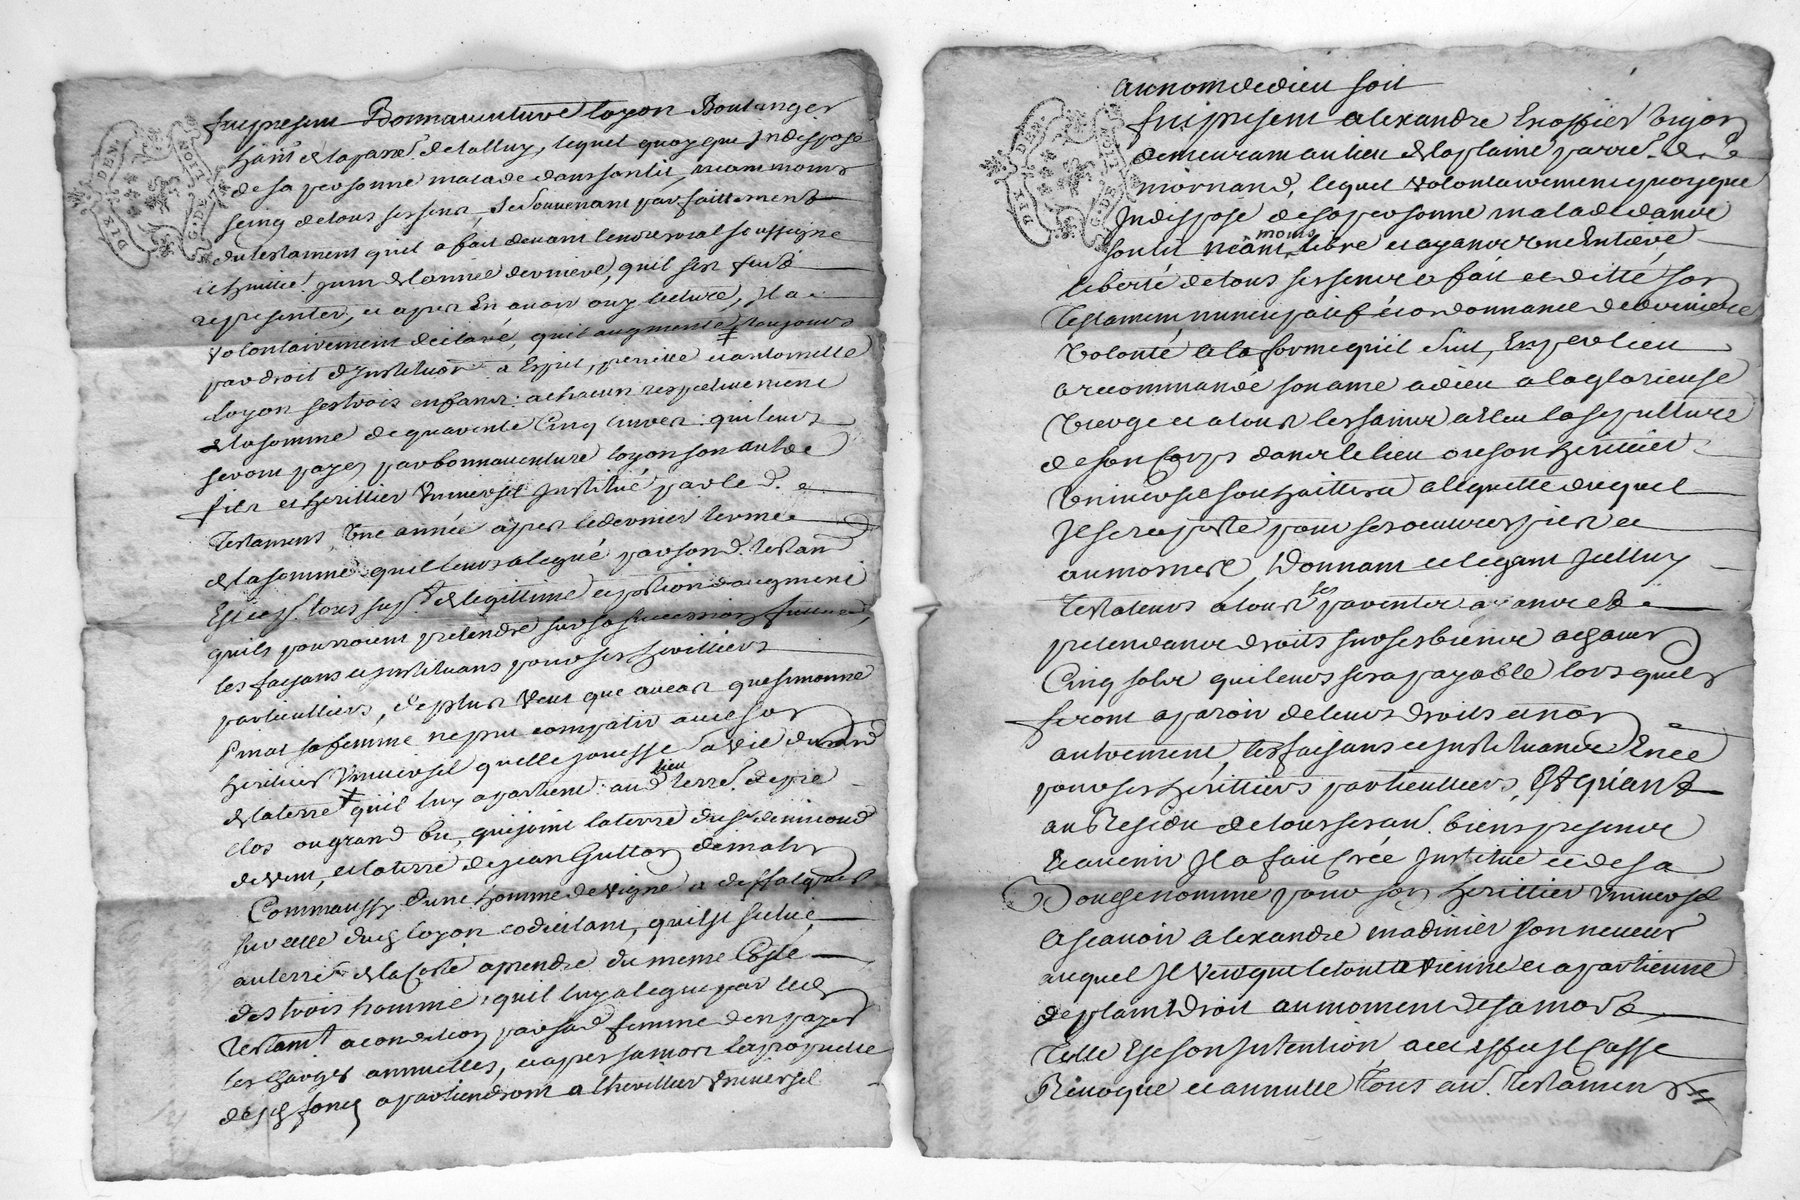 fut présent Bonnaventure loyon Boulanger
habit. de la parr. de talluy, lequel quoyque Indisposé
de sa personne malade dans son lit, neanmoins
sain de tous ses sens, se souvenant parfaittement
du testament qu'il a fait devant le notaire royal soussigné
le huitie. juin de l'année derniere, qu'il s'est fait
representer, et apres En avoir ouy lecture, Il a
volontairement déclaré, qu'il augmente toujours
par droit d'Institution a Esprit, pierrette et antoinette
loyon ses trois enfans a chacun respectivement
de la somme de quarente Cinq livres qui leurs
seront payés par bonnaventure loyon son autre
fils et heritier Universel Institué par le d.
Testament, Une année apres le dernier terme
de la somme qu'il leurs a legué par son d. testam
Et ce p. tous supt. de legittime et portion d'augment
qu'ils pourroient pretendre sur sa succession future,
les faisant et instituans pour ses heritiers
particulliers, de plus Veut que au cas que simonne
pinat sa femme ne put compatir avec son
heritier Universel qu'elle jouisse sa vie durand
de la terre qu'il luy apartient au d. lieu terre. de pré
clos ou grand bié, qui joint la terre du sr. demicoud
de vent, et la terre de jean Guttos de matin
Comm'aussy d'une homme de vigne a deffalquer
sur celle dud. loyon codicilant, qu'il est scituée
au terre. de la Coste a prendre du meme Costé
des trois homme qu'il luy a legue par led.
testamt. a condition par sa d. femme d'en payer
les charges annuelles, et apres sa mort la proprieté
de ces fonds apartiendront a l'heritier Universel
au nom de dieu soit
fut présent alexandre Enoffier vigon
demeurant au lieu de la plaine parre. de St
mornand, lequel volontairement quoyque
Indisposé de sa personne malade dans
son lit néanmoins libre et ayant une Entiere
liberté de tous ses sens a fait et ditté son
Testament nuncupatif et ordonnance de derniere
Volonté a la forme qui suit, En per lieu
a recommandé son ame a dieu a la glorieuse
Vierge et a tous les saints a Eleu la sepulture
de son Corps dans le lieu ou son heritier
Universel souhaittera a l'equitté duquel
Il se raporte pour ses oeuvres pies et
aumosnes, Donnant et legant Jcelluy
testateurs a tous les parents ayants et
pretendants droits sur ses biens a chacun
Cinq sols qui leurs sera payable lors qu'ils
feront aparoir de leurs droits et non
autrement, les faisans et Instituants En ce
pour ses heritiers particulliers, Et quant
au Residu de tous ses au. biens presents
Et avenir Il a fait Crée Institue et de sa
Bouche nomme pour son heritier Universel
A sçavoir alexandre madinier son neveu
auquel Il veut que le tout advienne et apartienne
de plain droit au moment de sa mort
Telle Est son Intention, a cet Effet Il Casse
Revoque et annulle tous au. testaments